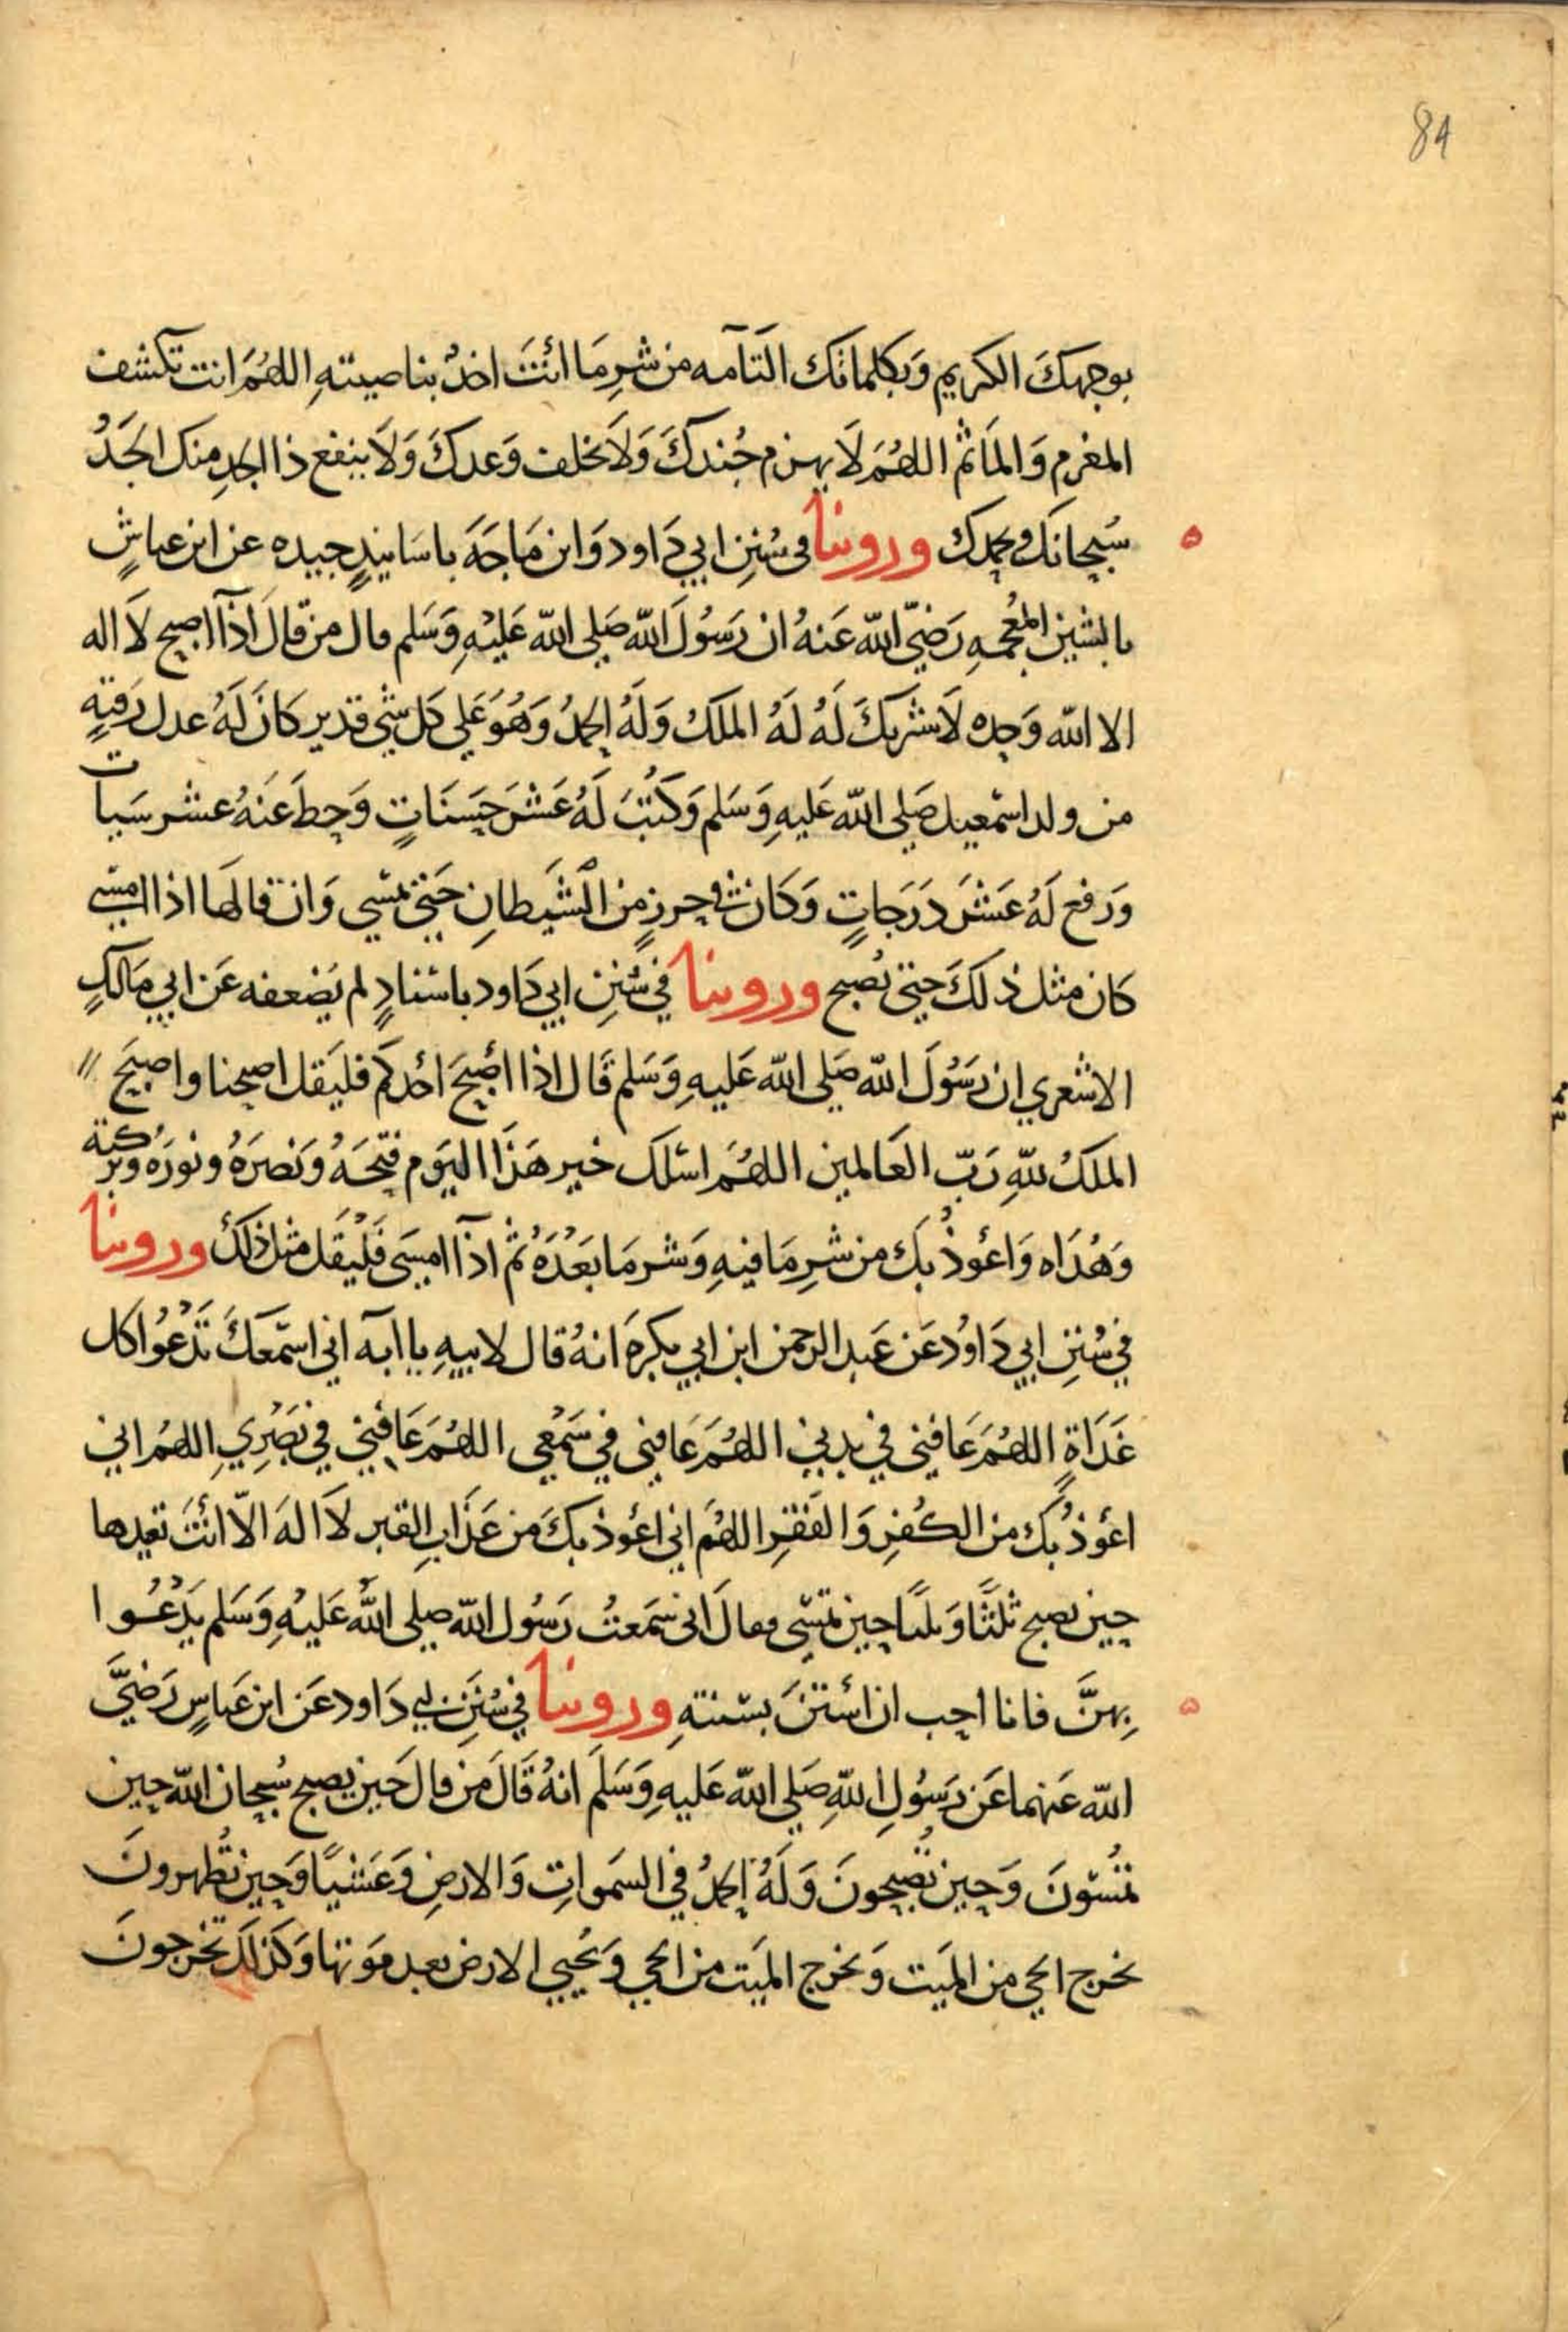 84
بوجهكَ الكريم وَبكلماتك التآمه من شرِ مَا انتَ اخذُ بناصيتهِ اللهُمَ انت تكشف
المغرم وَالمَاثم اللهُمَ لَا يهزم جُندكَ وَلَا يخلف وَعدكَ وَلَا ينفع ذا الجدِ منك الجَدُ
سُبحانكَ وبحمدك وروينا في سُننِ ابي دَاود وَابن مَاجَهَ باسَانيدٍ جيده عن ابن عياشٍ
بالشين المُعجمهِ رَضيّ الله عَنهُ ان رَسُولَ الله صَلى الله عَليْهِ وَسَلم قال من قالَ اذَآ اصبح لَا اله
الا الله وَحده لَا شريكَ لَهُ لَهُ الملكُ وَلَهُ الحمدُ وَهُوَ عَلي كل شي قدير كانَ لَهُ عدل رَقبةٍ
من ولد اسمعيل صَلى الله عَليهِ وَسَلم وَكُتبَ لَهُ عَشرَ حَسَنَاتٍ وَحطَ عَنهُ عشر سَيات
وَرَفع لَهُ عَشرَ دَرَجاتٍ وَكان في حرزٍ من الشَيطانِ حَتي تمسي وَان قالهَا اذا امسي
كان مثل ذلكَ حتى تُصبح وروينا في سُننِ ابي دَاود باسنادٍ لم يَضعفه عَن ابي مَالكٍ
الاشعري ان رسُولَ الله صَلى الله عَليهِ وَسَلم قَال اذا أصبحَ احَدكم فليَقل اصبحنا واصبَحَ
الملكُ للهِ رَبّ العَالمين اللهُمَ اسئلك خير هَذا اليَوم فتحَهُ وَنصرَهُ ونورَه وبركته
وَهُدَاه وَاعُوذُ بك من شرِ مَا فيهِ وَشر مَا بَعْدَهُ ثم اذَآ امسَى فَليْقل مثل ذلكَ وروينا
في سُننِ ابي دَاوُد عَن عَبد الرحمن ابن ابي بكرهَ انهُ قال لابيهِ يا ابه اني اسمَعكَ تَدْعُوا كل
غَدَاةٍ اللهُمَ عَافني في بدني اللهُمَ عَافني في سَمْعي اللهُمَ عَافني في بَصَرِي اللهُم اني
اعُوذُ بكَ من الكُفرِ وَالفَقرِ اللهُم اني اعُوذ بكَ من عَذابِ القبر لآ الهَ الّا انتَ تعيدها
حين تصبح ثلثًا وَثلثًا حين تمسي فقالَ اني سَمعتُ رَسُول الله صلى اللهُ عَليْهِ وَسَلم يَدْعُوا
بِهنَّ فانا احب ان استنَ بسُنتهِ وروينا في سُننِ ابي دَاود عَن ابن عَباسٍ رَضيَّ
الله عَنهما عَن رَسُولِ اللهِ صَلى الله عَليهِ وَسَلمَ انهُ قَالَ مَن قال حَين يصبح سُبحان الله حين
تمُسُونَ وَحين تُصبحونَ وَلَهُ الحمدُ في السَموَاتِ وَالارضِ وَعَشيًا وَحين تُظهرونَ
يخرج الحي من الميَت وَيخرج الميَت من الحي وَيُحيي الارض بعد مَوتها وَكذلكَ تخرجونَ